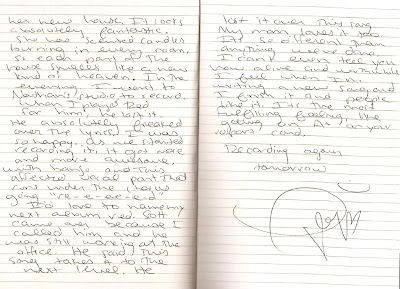 her new house, It looks
absolutely fantastic.
She has scented candles
burning in every room,
so each part of the
house smells like a new
kind of heaven. In the
evening I went to
Nathan's studio to record.
When I played Red
for him, he lost it.
He absolutely freaked
over the lyrics, I was
so happy. As we started
recording it, it got more
and more awesome,
with banjo and this
affected vocal part that
runs under the chorus
going "re-e-e-e-d"
I'd love to name my
next album red. Scott
came over because I
called him and he
was still working at the
office. He said this
song takes it to the
next level. He
lost it over this song.
My mom loves it too.
It's so different than
anything we've done.
I can't even tell you
how alive and worthwhile
I feel when I'm
writing a new song and
I finish it and people
like it. It's the most
fulfilling feeling, like
getting an A+ on your
report card.
Recording again
tomorrow